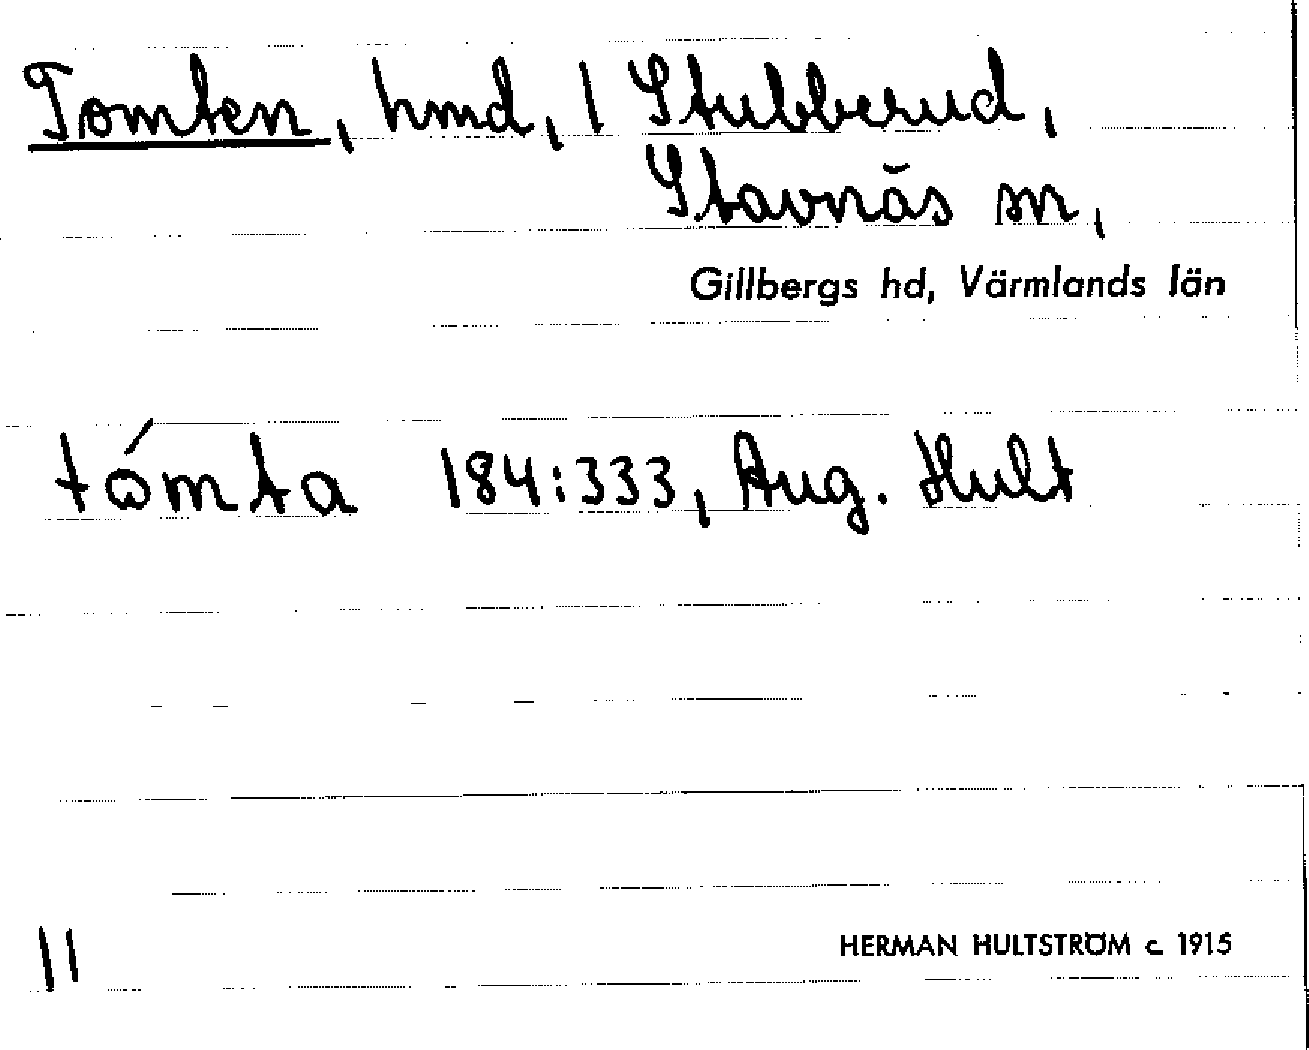 Tomten, hmd, 1 Stubberud,
Stavnäs sn,
Gillbergs hd, Värmlands län
tώmta 184:333, Aug. Hult
11
HERMAN HULTSTRÖM c. 1915